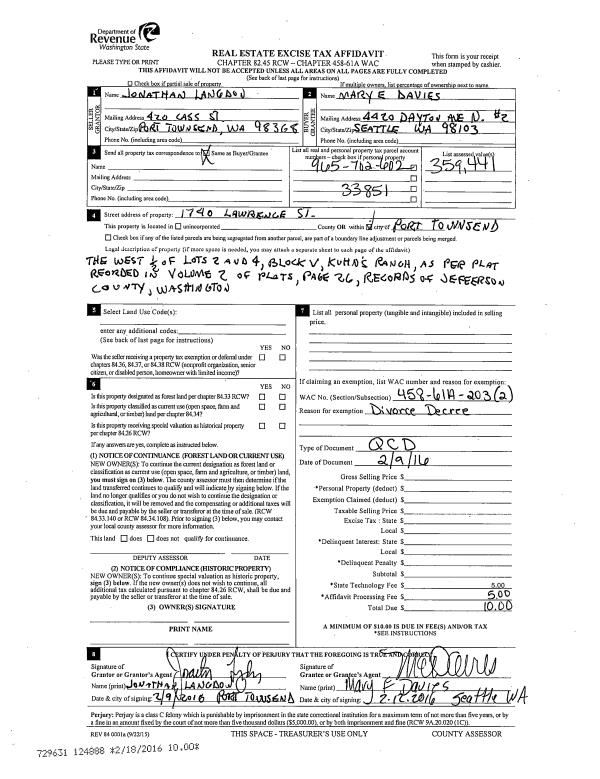 Department of
Revenue
Washington State
REAL ESTATE EXCISE TAX AFFIDAVIT
PLEASE TYPE OR PRINT
CHAPTER 82.45 RCW – CHAPTER 458-61A WAC
This form is your receipt
when stamped by cashier.
THIS AFFIDAVIT WILL NOT BE ACCEPTED UNLESS ALL AREAS ON ALL PAGES ARE FULLY COMPLETED
(See back of last page for instructions)
Check box if partial sale of property
If multiple owners, list percentage of ownership next to name.
1 Name JONATHAN LANGDON
2 Name MARY E DAVIES
SELLER GRANTOR
BUYER GRANTEE
Mailing Address 420 CASS ST
Mailing Address 4420 DAYTON AVE N. #2
City/State/Zip PORT TOWNSEND, WA 98368
City/State/Zip SEATTLE WA 98103
Phone No. (including area code)
Phone No. (including area code)
3 Send all property tax correspondence to: Same as Buyer/Grantee
List all real and personal property tax parcel account
numbers – check box if personal property
List assessed value(s)
Name
965-702-602
359,441
Mailing Address
City/State/Zip
33851
Phone No. (including area code)
4 Street address of property: 1740 LAWRENCE ST.
This property is located in unincorporated County OR within city of PORT TOWNSEND
Check box if any of the listed parcels are being segregated from another parcel, are part of a boundary line adjustment or parcels being merged.
Legal description of property (if more space is needed, you may attach a separate sheet to each page of the affidavit)
THE WEST ½ OF LOTS 2 AND 4, BLOCK V, KUHN'S RANCH, AS PER PLAT
REORDED IN VOLUME 2 OF PLOTS, PAGE 26, RECORDS OF JEFFERSON
COUNTY, WASHINGTON
5 Select Land Use Code(s):
enter any additional codes:
(See back of last page for instructions)
YES NO
Was the seller receiving a property tax exemption or deferral under
chapters 84.36, 84.37, or 84.38 RCW (nonprofit organization, senior
citizen, or disabled person, homeowner with limited income)?
6
YES NO
Is this property designated as forest land per chapter 84.33 RCW?
Is this property classified as current use (open space, farm and
agricultural, or timber) land per chapter 84.34?
Is this property receiving special valuation as historical property
per chapter 84.26 RCW?
If any answers are yes, complete as instructed below.
(1) NOTICE OF CONTINUANCE (FOREST LAND OR CURRENT USE)
NEW OWNER(S): To continue the current designation as forest land or
classification as current use (open space, farm and agriculture, or timber) land,
you must sign on (3) below. The county assessor must then determine if the
land transferred continues to qualify and will indicate by signing below. If the
land no longer qualifies or you do not wish to continue the designation or
classification, it will be removed and the compensating or additional taxes will
be due and payable by the seller or transferor at the time of sale. (RCW
84.33.140 or RCW 84.34.108). Prior to signing (3) below, you may contact
your local county assessor for more information.
This land does does not qualify for continuance.
DEPUTY ASSESSOR DATE
(2) NOTICE OF COMPLIANCE (HISTORIC PROPERTY)
NEW OWNER(S): To continue special valuation as historic property,
sign (3) below. If the new owner(s) does not wish to continue, all
additional tax calculated pursuant to chapter 84.26 RCW, shall be due and
payable by the seller or transferor at the time of sale.
(3) OWNER(S) SIGNATURE
PRINT NAME
7 List all personal property (tangible and intangible) included in selling
price.
If claiming an exemption, list WAC number and reason for exemption:
WAC No. (Section/Subsection) 458-61A-203(2)
Reason for exemption Divorce Decree
Type of Document QCD
Date of Document 2/9/16
Gross Selling Price $
*Personal Property (deduct) $
Exemption Claimed (deduct) $
Taxable Selling Price $
Excise Tax : State $
Local $
*Delinquent Interest: State $
Local $
*Delinquent Penalty $
Subtotal $
*State Technology Fee $ 5.00
*Affidavit Processing Fee $ 5.00
Total Due $ 10.00
A MINIMUM OF $10.00 IS DUE IN FEE(S) AND/OR TAX
*SEE INSTRUCTIONS
8 I CERTIFY UNDER PENALTY OF PERJURY THAT THE FOREGOING IS TRUE AND CORRECT
Signature of
Grantor or Grantor's Agent
Name (print) JONATHAN LANGDON
Date & city of signing: 2/9/2016 PORT TOWNSEND
Signature of
Grantee or Grantee's Agent
Name (print) Mary E Davies
Date & city of signing: 2.12.2016 Seattle WA
Perjury: Perjury is a class C felony which is punishable by imprisonment in the state correctional institution for a maximum term of not more than five years, or by
a fine in an amount fixed by the court of not more than five thousand dollars ($5,000.00), or by both imprisonment and fine (RCW 9A.20.020 (1C)).
REV 84 0001a (9/22/15)
THIS SPACE - TREASURER'S USE ONLY
COUNTY ASSESSOR
729631 124888 *2/18/2016 10.00*